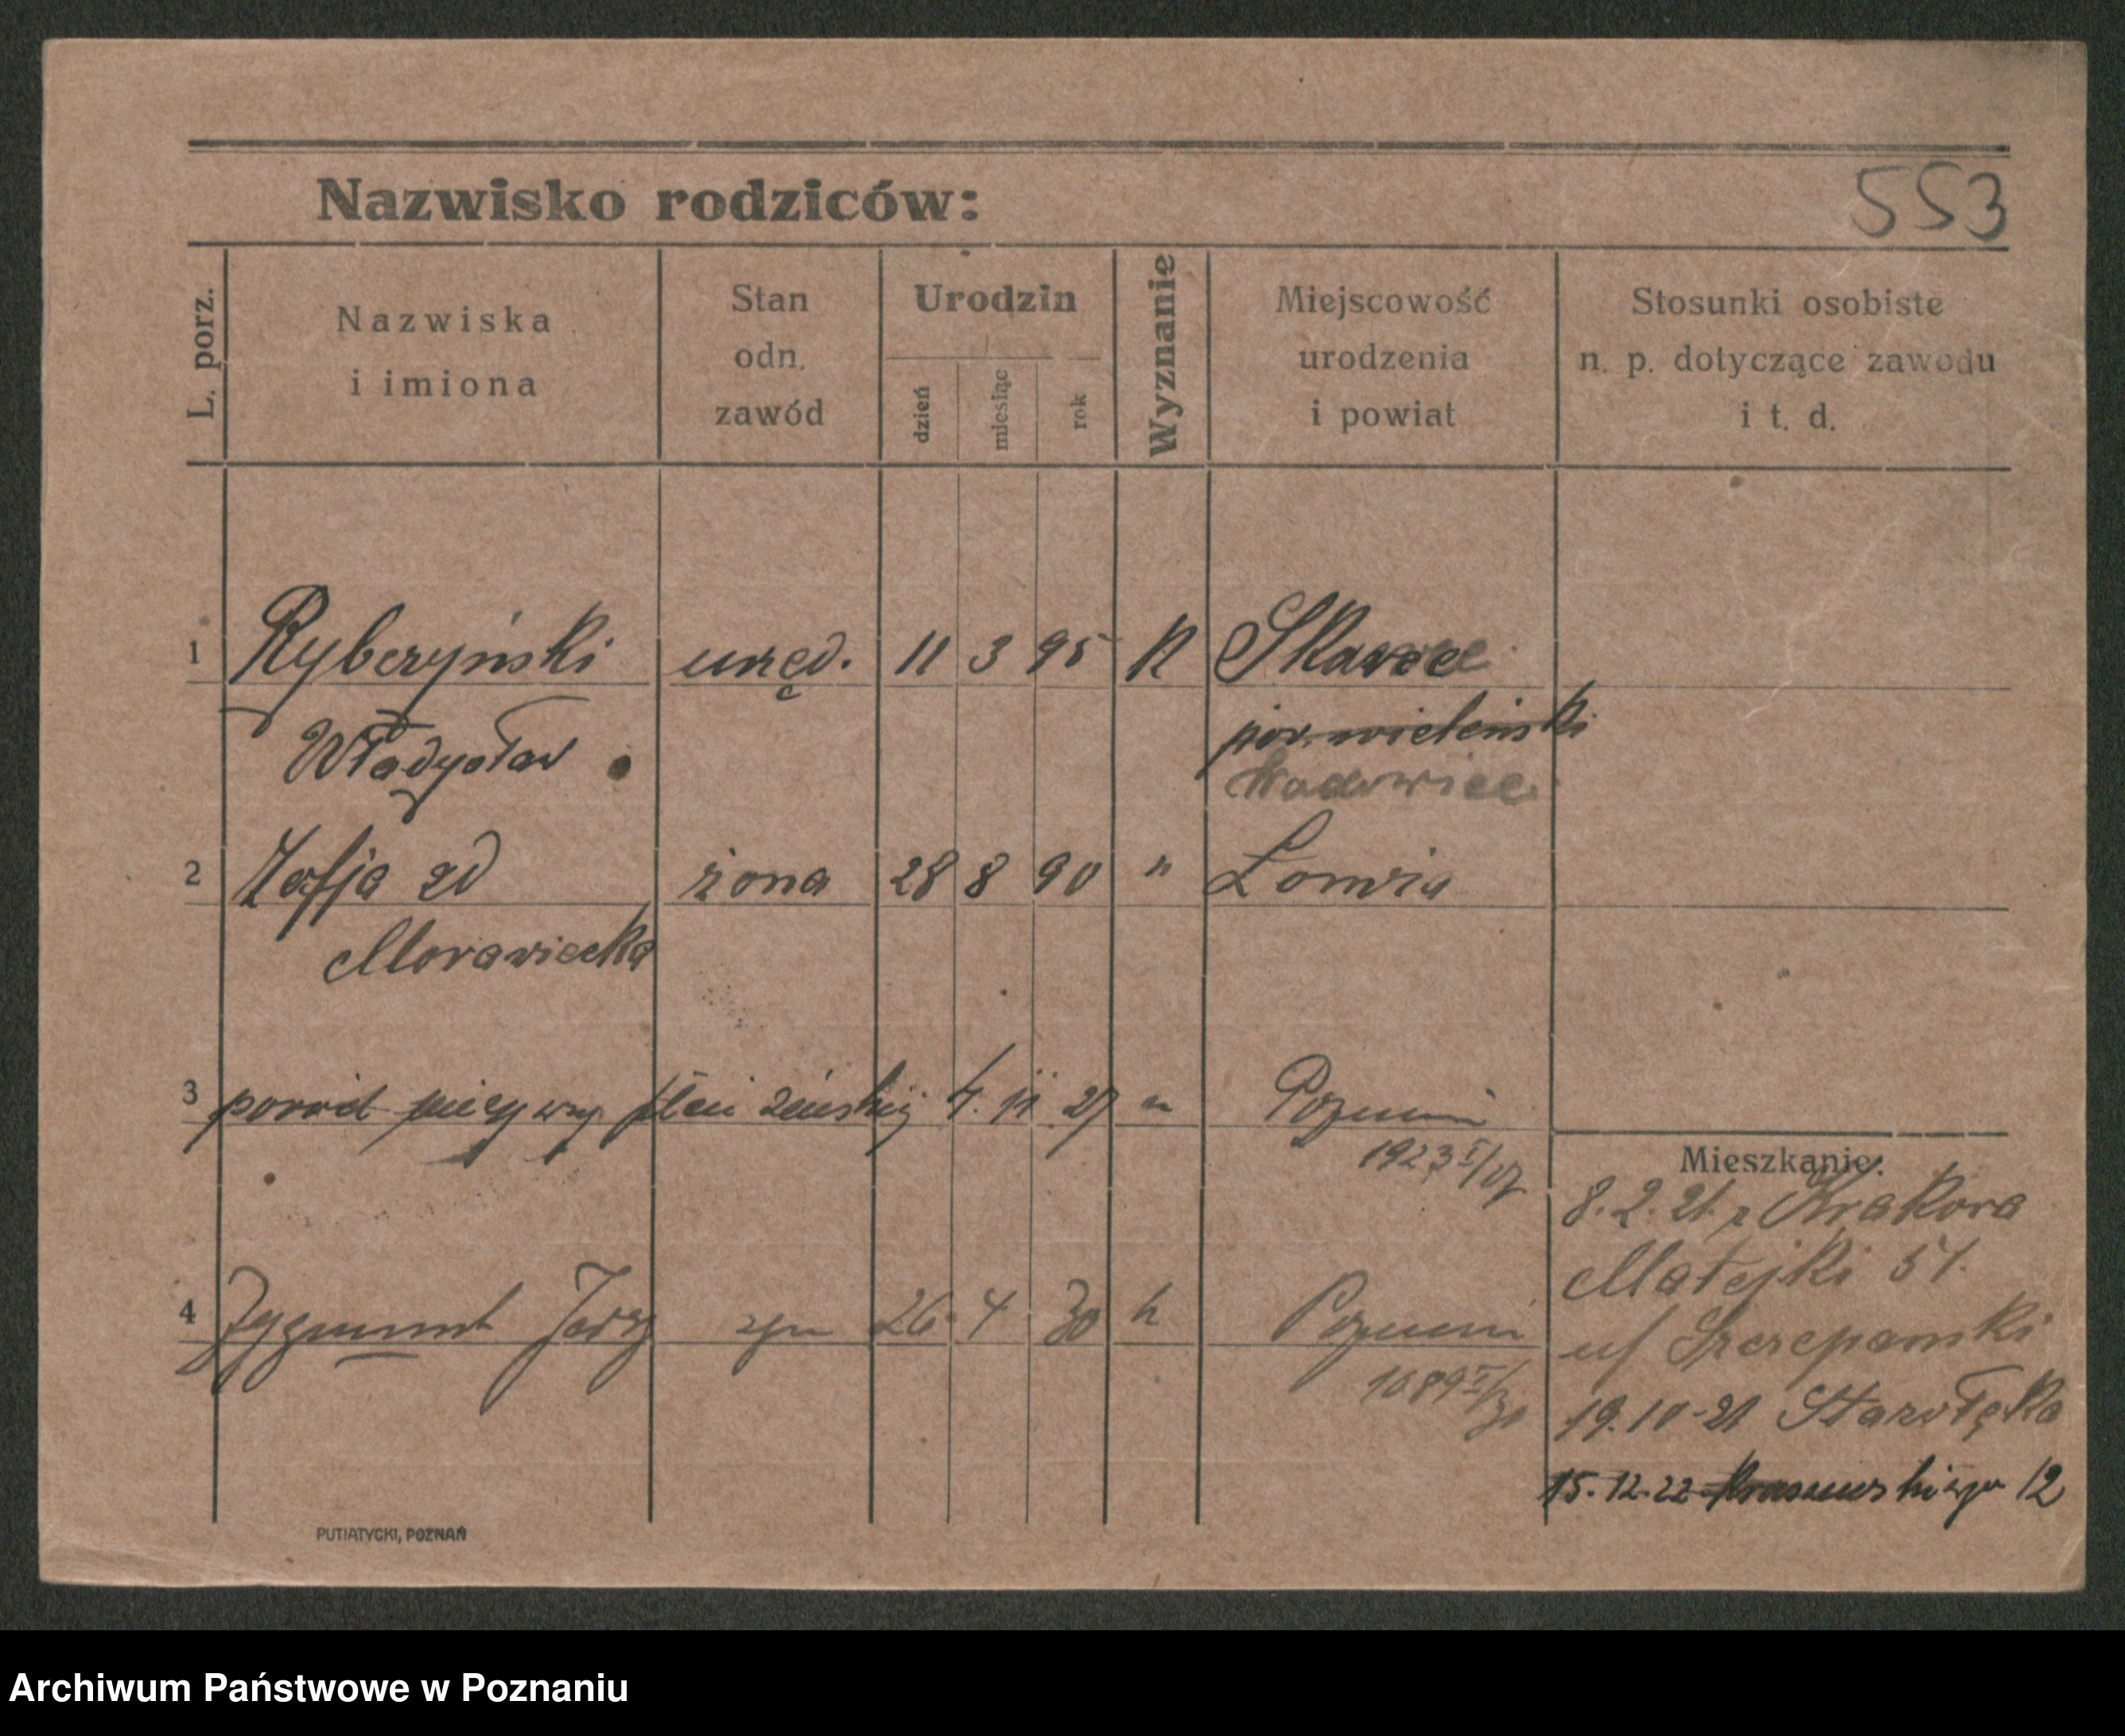 Nazwisko rodziców:
553
L. porz.
Nazwiska
i imiona
Stan
odn.
zawód
Urodzin
dzień
miesiąc
rok
Wyznanie
Miejscowość
urodzenia
i powiat
Stosunki osobiste
n. p. dotyczące zawodu
i t. d.
1 Ryberyński urzęd. 11 3 95 K
Władysław
Wadowice
2 Zofja zd żona 28 8 90 "
Morawiecka
3 poród płci żeńskiej 4. 11 27 " Poznań
1923 I/27
Mieszkanie:
8. 2. 21 z Krakowa
Matejki 51.
4 Zygmunt Jerzy syn 26. 4 30 k Poznań
u/ Szczepanski
1089 I/30
19. 10 - 21 Starołęka
15. 12. 22 Kraszewskiego 12
PUTIATYCKI, POZNAŃ
Archiwum Państwowe w Poznaniu